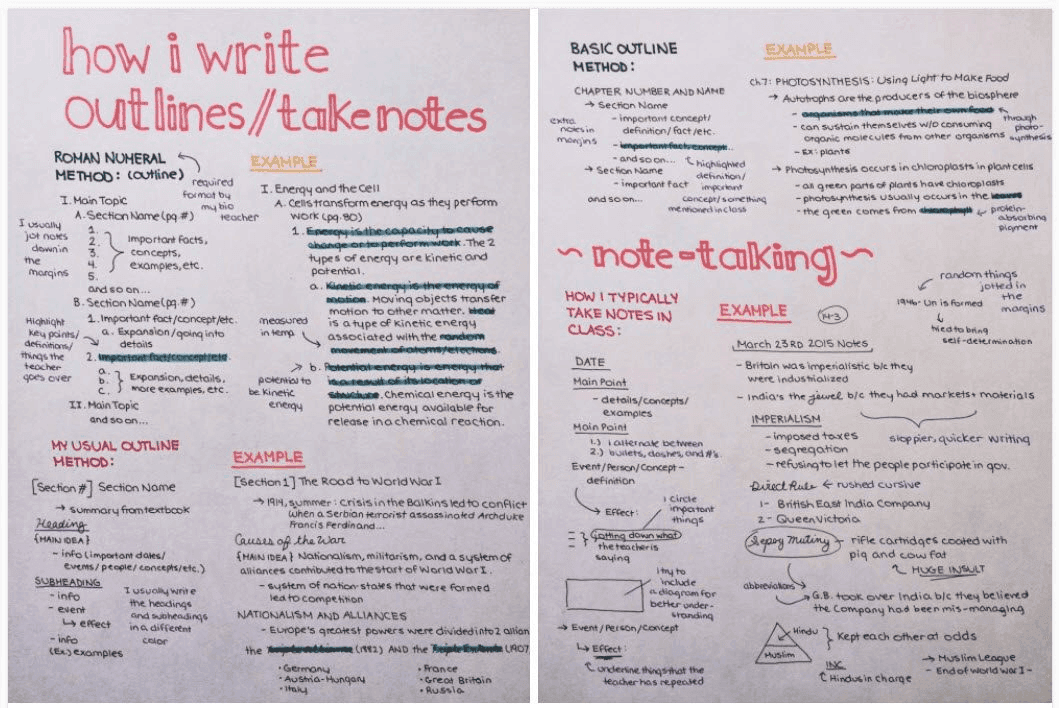 how i write
outlines//take notes
ROMAN NUMERAL
METHOD: (outline)
required
format by
my bio
teacher
I. Main Topic
A. Section Name (pg. #)
1.
2.
3.
4.
5.
Important facts,
concepts,
examples, etc.
and so on...
I usually
jot notes
down in
the
margins
B. Section Name (pg. #)
1. Important fact/concept/etc.
a. Expansion/going into
details
2. Important fact/concept/etc.
a.
b.
c.
Expansion, details,
more examples, etc.
Highlight
key points/
definitions/
things the
teacher
goes over
II. Main Topic
and so on...
EXAMPLE
I. Energy and the Cell
A. Cells transform energy as they perform
work (pg. 80)
1. Energy is the capacity to cause
change or to perform work. The 2
types of energy are kinetic and
potential.
a. Kinetic energy is the energy of
motion. Moving objects transfer
motion to other matter. Heat
is a type of kinetic energy
associated with the random
movement of atoms/electrons.
measured
in temp
b. Potential energy is energy that
is a result of its location or
structure. Chemical energy is the
potential energy available for
release in a chemical reaction.
potential to
be kinetic
energy
MY USUAL OUTLINE
METHOD:
[Section #] Section Name
→ summary from textbook
Heading
{MAIN IDEA}
- info (important dates/
events/people/concepts/etc.)
SUBHEADING
- info
- event
↳ effect
- info
(Ex) examples
I usually write
the headings
and subheadings
in a different
color
EXAMPLE
[Section 1] The Road to World War I
→ 1914, summer: crisis in the Balkins led to conflict
when a Serbian terrorist assassinated Archduke
Francis Ferdinand...
Causes of the War
{MAIN IDEA} Nationalism, militarism, and a system of
alliances contributed to the start of World War I.
- system of nation-states that were formed
led to competition
NATIONALISM AND ALLIANCES
- Europe's greatest powers were divided into 2 allian
the Triple Alliance (1882) AND the Triple Entente (1907
• Germany
• Austria-Hungary
• Italy
• France
• Great Britain
• Russia
BASIC OUTLINE
METHOD:
CHAPTER NUMBER AND NAME
→ Section Name
- important concept/
definition/fact/etc.
- important fact, concept...
- and so on...
→ Section Name
- important fact
and so on...
extra
notes in
margins
highlighted
definition/
important
concept/something
mentioned in class
EXAMPLE
Ch 7: PHOTOSYNTHESIS: Using Light to Make Food
→ Autotrophs are the producers of the biosphere
- organisms that make their own food
- can sustain themselves w/o consuming
organic molecules from other organisms
- Ex: plants
through
photo-
synthesis
→ Photosynthesis occurs in chloroplasts in plant cells
- all green parts of plants have chloroplasts
- photosynthesis usually occurs in the leaves
- the green comes from chlorophyll
protein-
absorbing
pigment
~ note-taking ~
HOW I TYPICALLY
TAKE NOTES IN
CLASS:
DATE
Main Point
- details/concepts/
examples
Main Point
1.) i alternate between
2.) bullets, dashes, and #'s.
Event/Person/Concept -
definition
→ Effect:
i circle
important
things
Jotting down what
the teacher is
saying
i try to
include
a diagram for
better under-
standing
→ Event/Person/Concept
↳ Effect:
underline things that the
teacher has repeated
EXAMPLE
14-3
random things
jotted in
the
margins
1946 - Un is formed
tried to bring
self-determination
March 23RD 2015 Notes
- Britain was imperialistic b/c they
were industrialized
- India's the jewel b/c they had markets + materials
IMPERIALISM
- imposed taxes
- segregation
- refusing to let the people participate in gov.
sloppier, quicker writing
Direct Rule ← rushed cursive
1- British East India Company
2- Queen Victoria
Sepoy Mutiny - rifle cartridges coated with
pig and cow fat
HUGE INSULT
abbreviations
G.B. took over India b/c they believed
the Company had been mis-managing
Hindu
Muslim
Kept each other at odds
INC
Hindus in charge
→ Muslim League
- End of World War I -